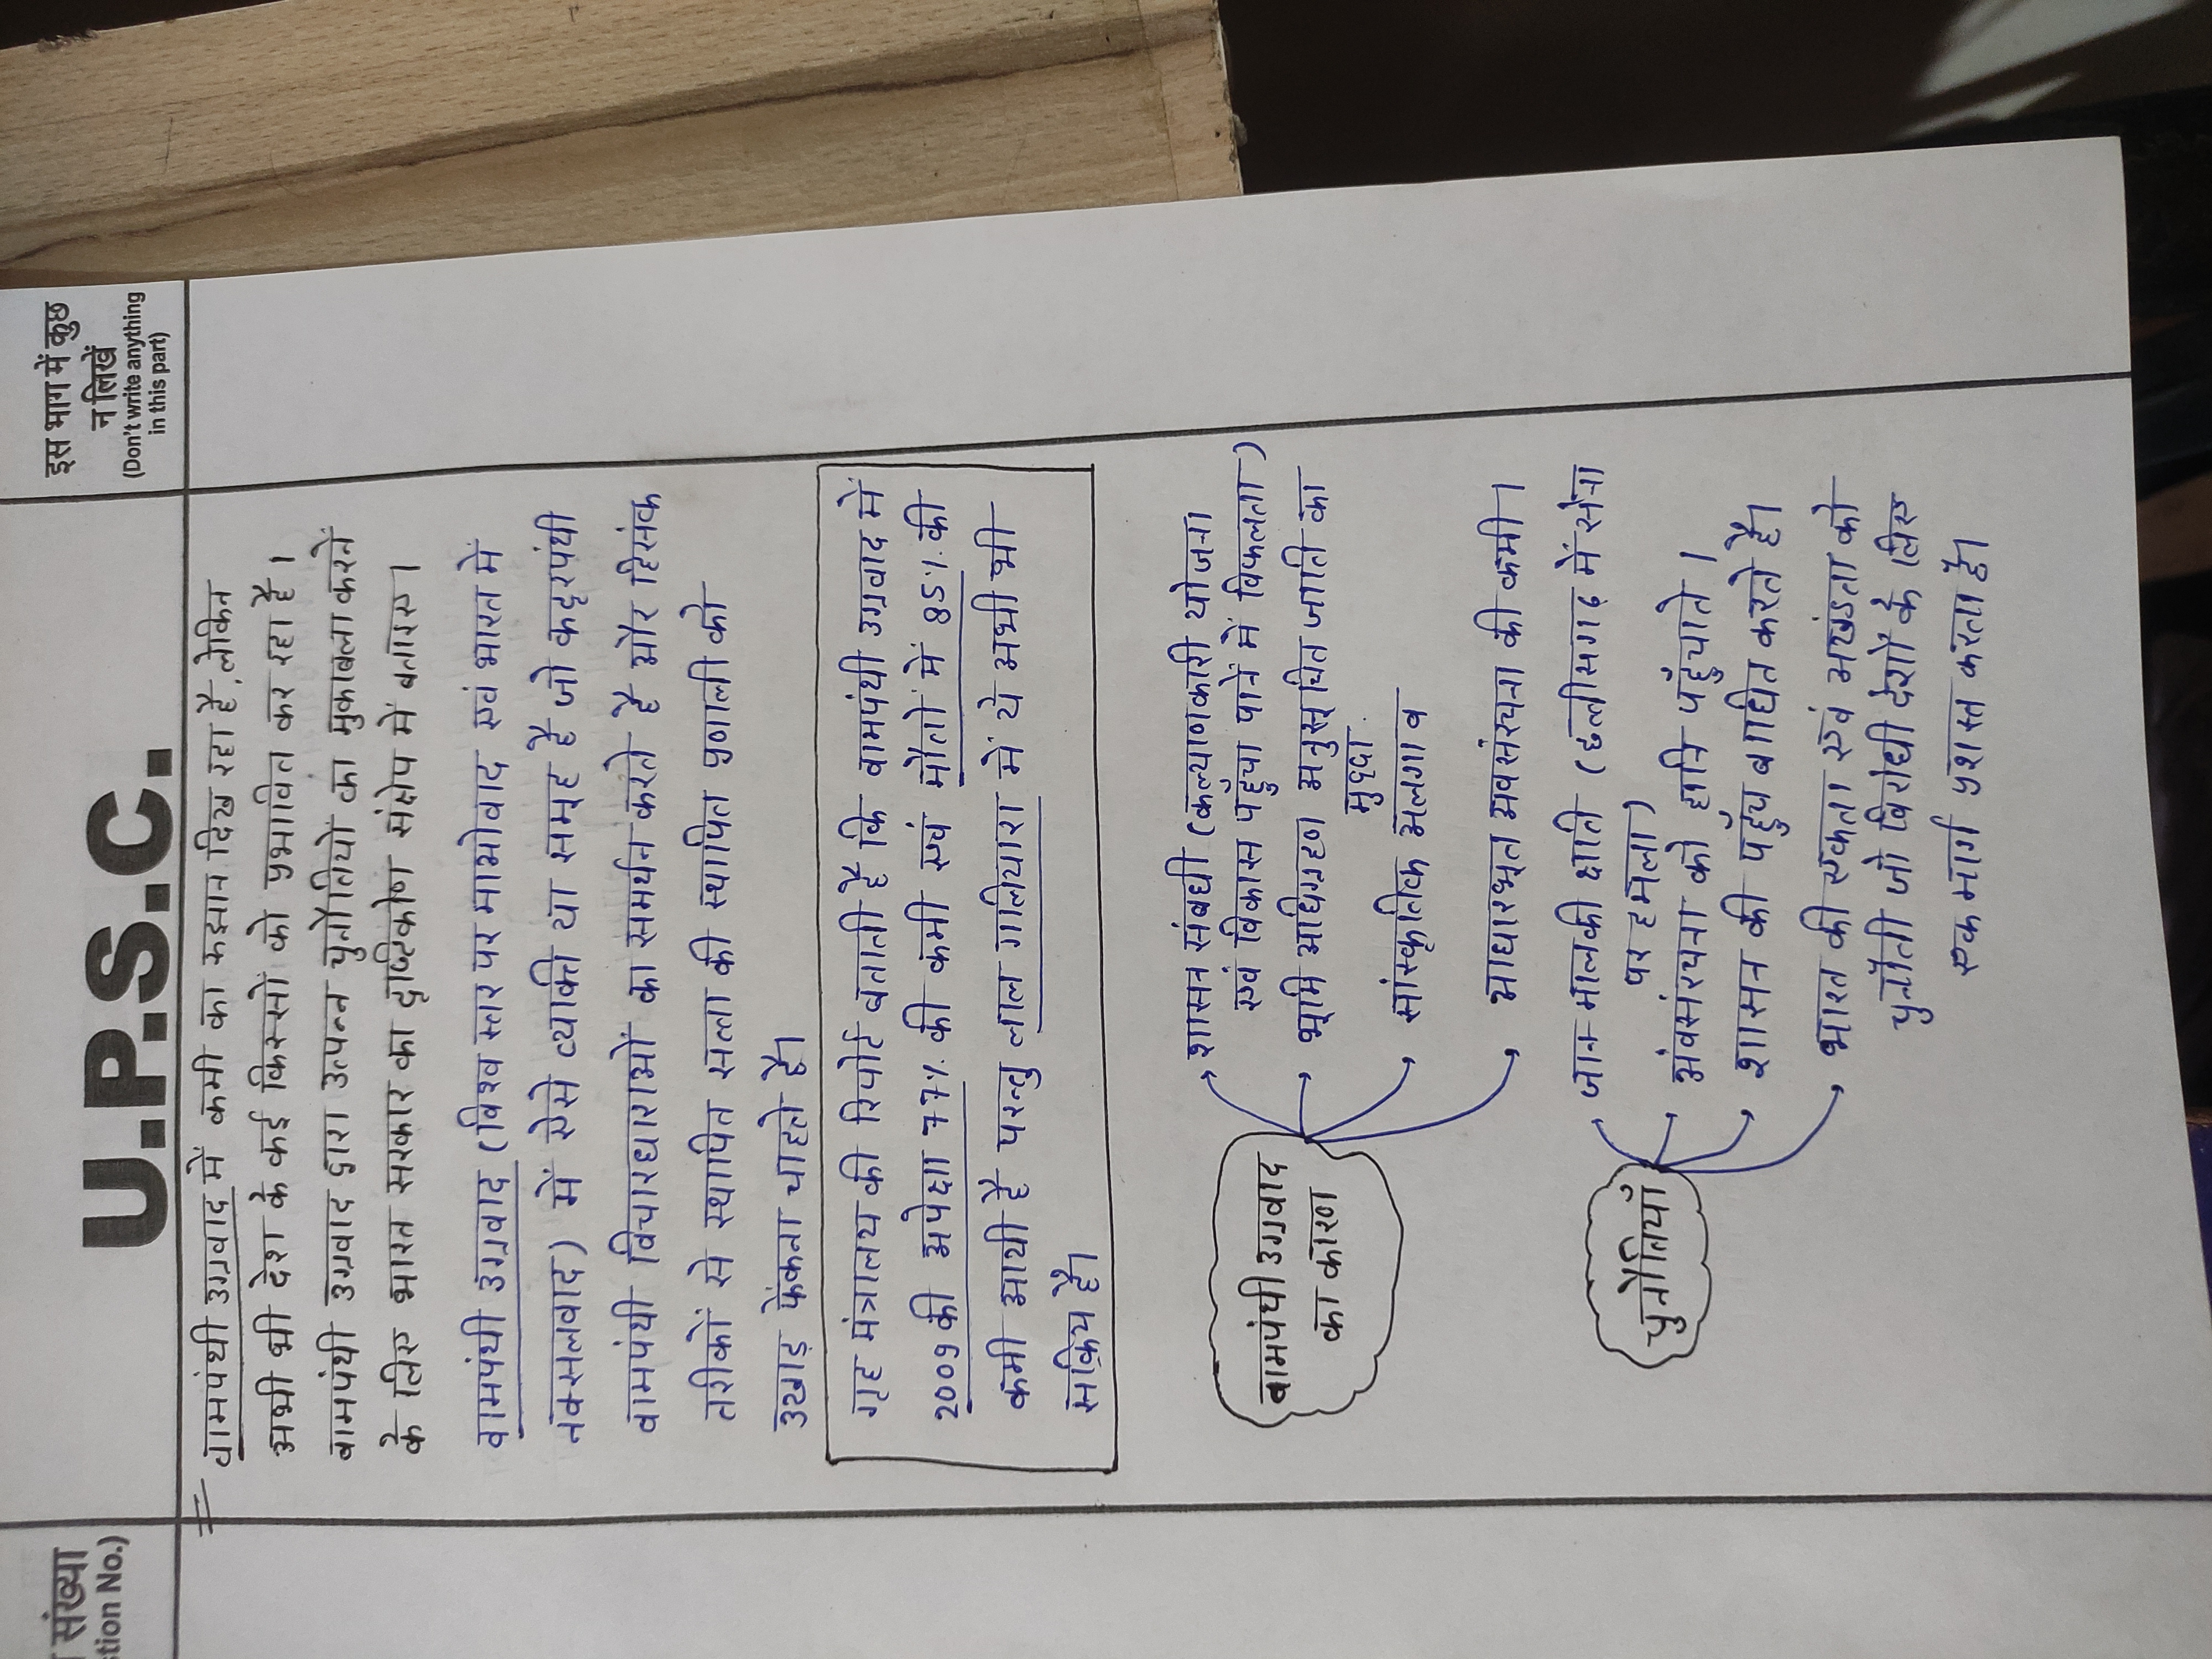 संख्या
stion No.)
U.P.S.C.
इस भाग में कुछ
न लिखें
(Don't write anything
in this part)
वामपंथी उग्रवाद में कमी का रुझान दिख रहा है, लेकिन
अभी भी देश के कई किस्सों को प्रभावित कर रहा है।
वामपंथी उग्रवाद द्वारा उत्पन्न चुनौतियों का मुकाबला करने
के लिए भारत सरकार का दृष्टिकोण संक्षेप में बताएए।
वामपंथी उग्रवाद (विश्व स्तर पर माओवाद एवं भारत में
नक्सलवाद) में ऐसे व्यक्ति या समूह है जो कट्टरपंथी
वामपंथी विचारधाराओं का समर्थन करते है और हिसंक
तरीकों से स्थापित सत्ता की स्थापित प्रणाली को
उखाड़ फेंकना चाहते है।
गृह मंत्रालय की रिपोर्ट बताती है कि वामपंथी उग्रवाद में
2009 की अपेक्षा 77% की कमी एवं मौतो में 85% की
कमी आयी है परन्तु लाल गलियारा में ये अभी भी
सक्रिय है।
वामपंथी उग्रवाद
का कारण
शासन संबंधी (कल्याणकारी योजना
एवं विकास पहुँचा पाने में विफलता)
भूमि अधिग्रहण अनुसूचित जाति का
मुद्दा
सांस्कृतिक अलगाव
आधारभूत अवसंरचना की कमी।
चुनौतियाँ
जान-माल की क्षति (छत्तीसगढ़ में सेना
पर हमला)
अंवसंरचना को हानि पहुँचाते।
शासन की पहुँच बाधित करते है।
भारत की एकता एवं अखंडता को
चुनौती जो विरोधी देशों के लिए
एक मार्ग प्रशस्त करता है।